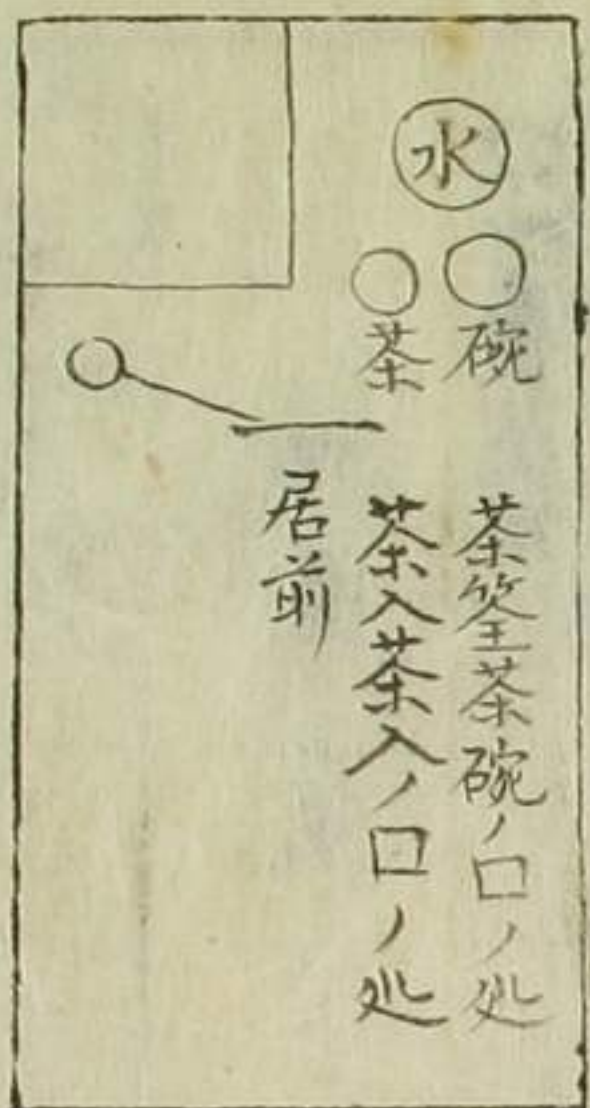 水
碗
茶
茶筌茶碗ノ口ノ処
茶入茶入ノ口ノ処
居前